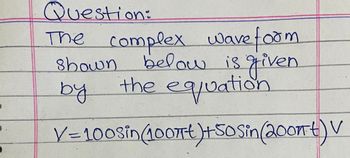 Question:
The complex waveform
shown below is given
by the equation
V=100sin(100πt)+50sin(200πt)V